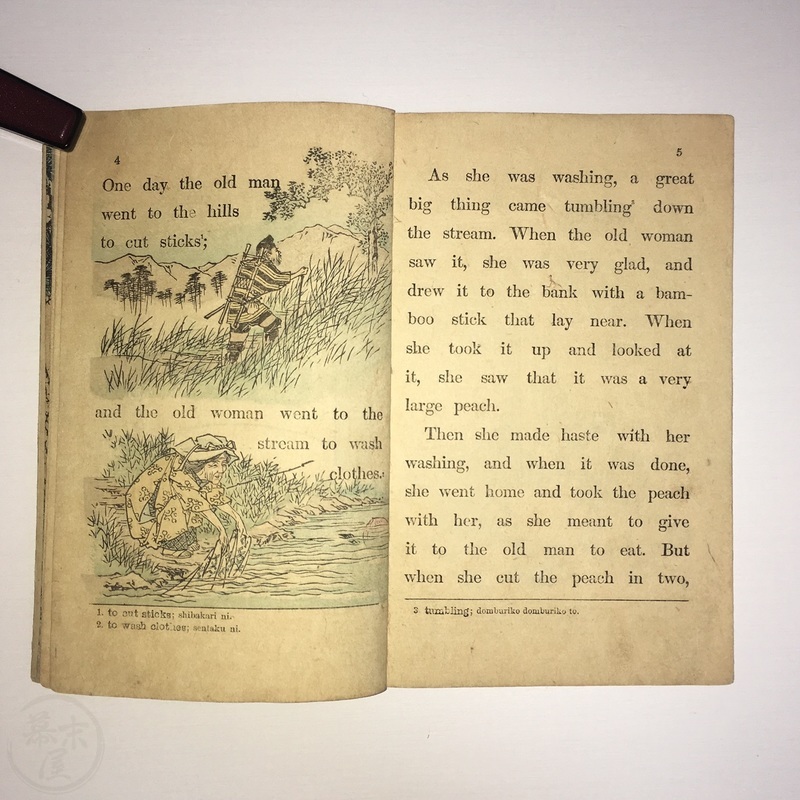 4
One day the old man
went to the hills
to cut sticks¹;
and the old woman went to the
stream to wash
clothes.²
1. to cut sticks; shibakari ni.
2. to wash clothes; sentaku ni.
5
As she was washing, a great
big thing came tumbling³ down
the stream. When the old woman
saw it, she was very glad, and
drew it to the bank with a bam-
boo stick that lay near. When
she took it up and looked at
it, she saw that it was a very
large peach.
Then she made haste with her
washing, and when it was done,
she went home and took the peach
with her, as she meant to give
it to the old man to eat. But
when she cut the peach in two,
3. tumbling; domburiko domburiko to.
幕末屋